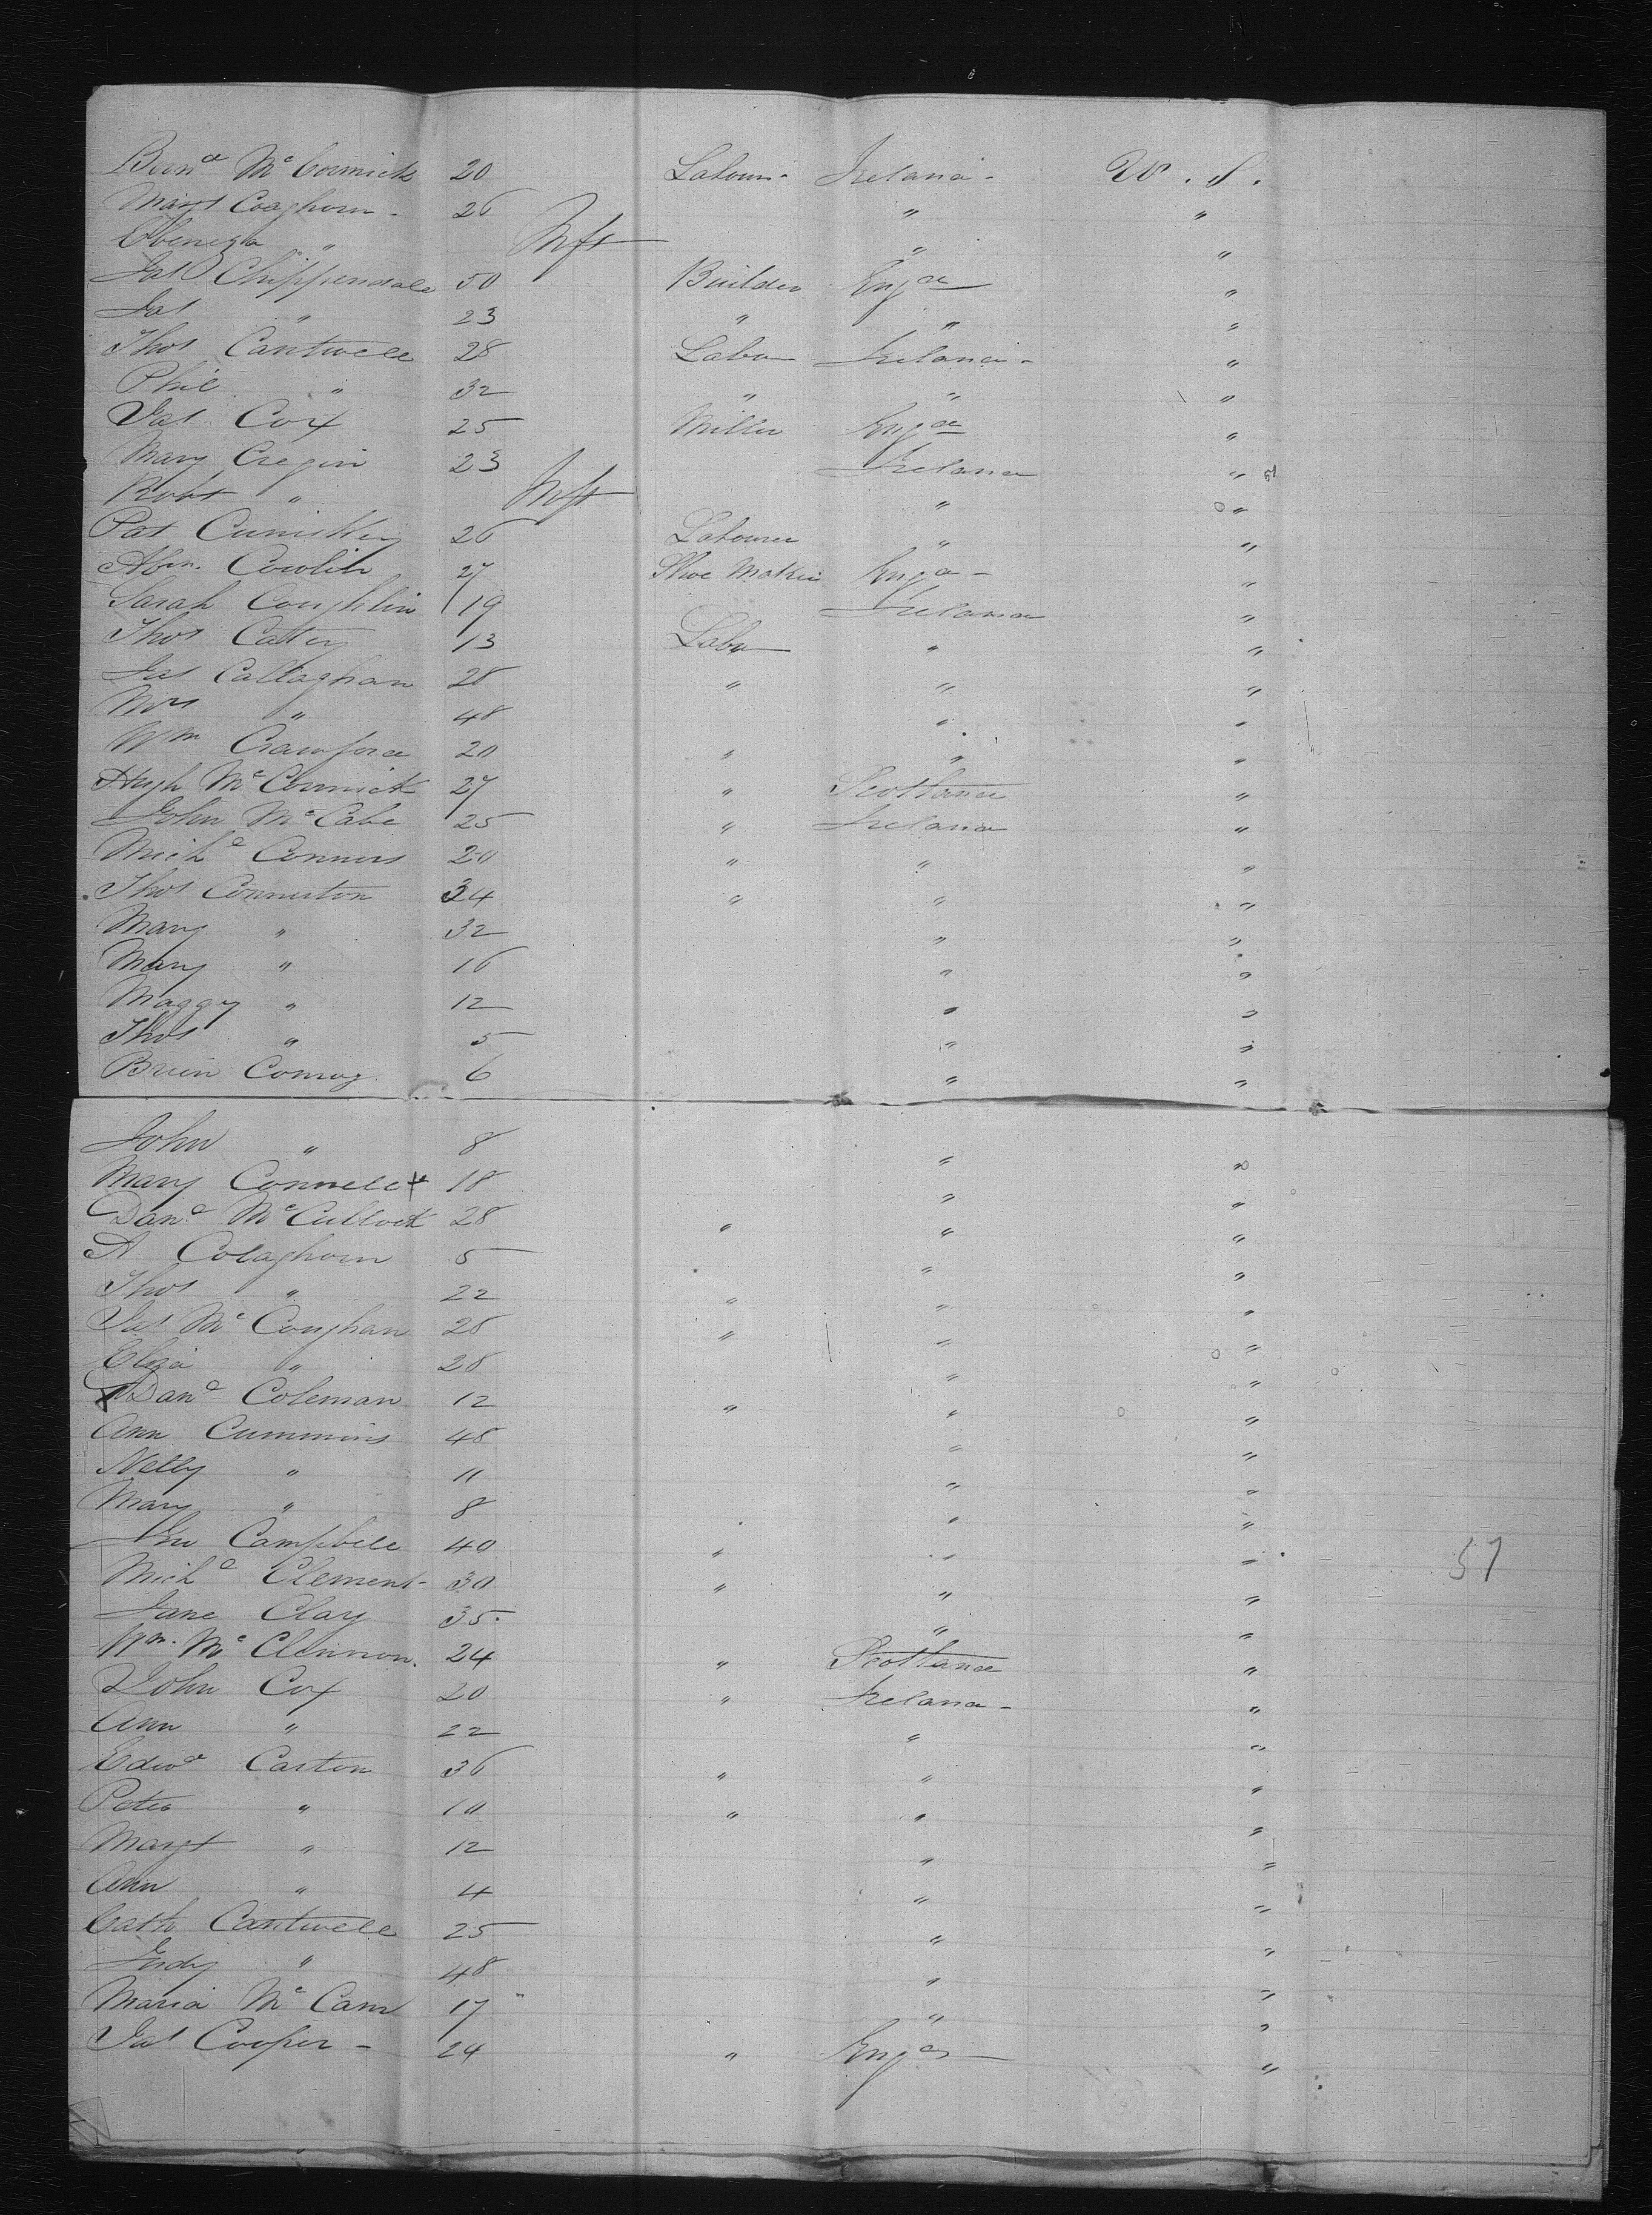 Bern^d M^c Cormick 20 Labour- Ireland - U. S.
Marg^t Coaghorn - 26 " "
Ebeneza " Inft " "
Jas Chippendale 50 Builder Eng^d "
Jas " 23 " " "
Thos Cantwell 28 Labr Ireland - "
Phil " 32 " " "
Jas Cox 25 Miller Eng^d "
Mary Cregin 23 Ireland "
Robt " Inft " "
Pat Cuniskey 26 Labourer " "
Abm. Cowlin 27 Shoe Maker Engd - "
Sarah Coughlin 19 Ireland "
Thos Cattey 13 Labr " "
Jas Callaghan 28 " " "
Mrs " 48 " "
Wm Crawford 20 " " "
Hugh M^c Cormick 27 " Scotland "
John M^c Cabe 25 " Ireland "
Mich^l Connors 20 " " "
Thos Connerton 34 " " "
Mary " 32 " "
Mary " 16 " "
Maggy " 12 " "
Thos " 5 " "
Brien Conroy 6 " "
John " 8 " "
Mary Connell 18 " "
Dan^l M^c Cullock 28 " " "
A Colaghorn 5 " "
Thos " 22 " " "
Jas M^c Coughan 28 " " "
Eliza " 28 " "
Dan^l Coleman 12 " " "
Ann Cummins 48 " "
Nelly " 11 " "
Mary " 8 " "
Campbell 40 " " "
Mich^l Clement - 30 " " "
Jane Clay 35 " "
Wm. M^c Clennon. 24 " Scotland "
John Cox 20 " Ireland - "
Ann " 22 " "
Edw^d Carton 36 " " "
Peter " 10 " " "
Margt " 12 " "
Ann " 4 " "
Cath Cantwell 25 " "
Judy " 48 " "
Maria M^c Cann 17 " "
Jas Cooper - 24 " Eng^d "
57